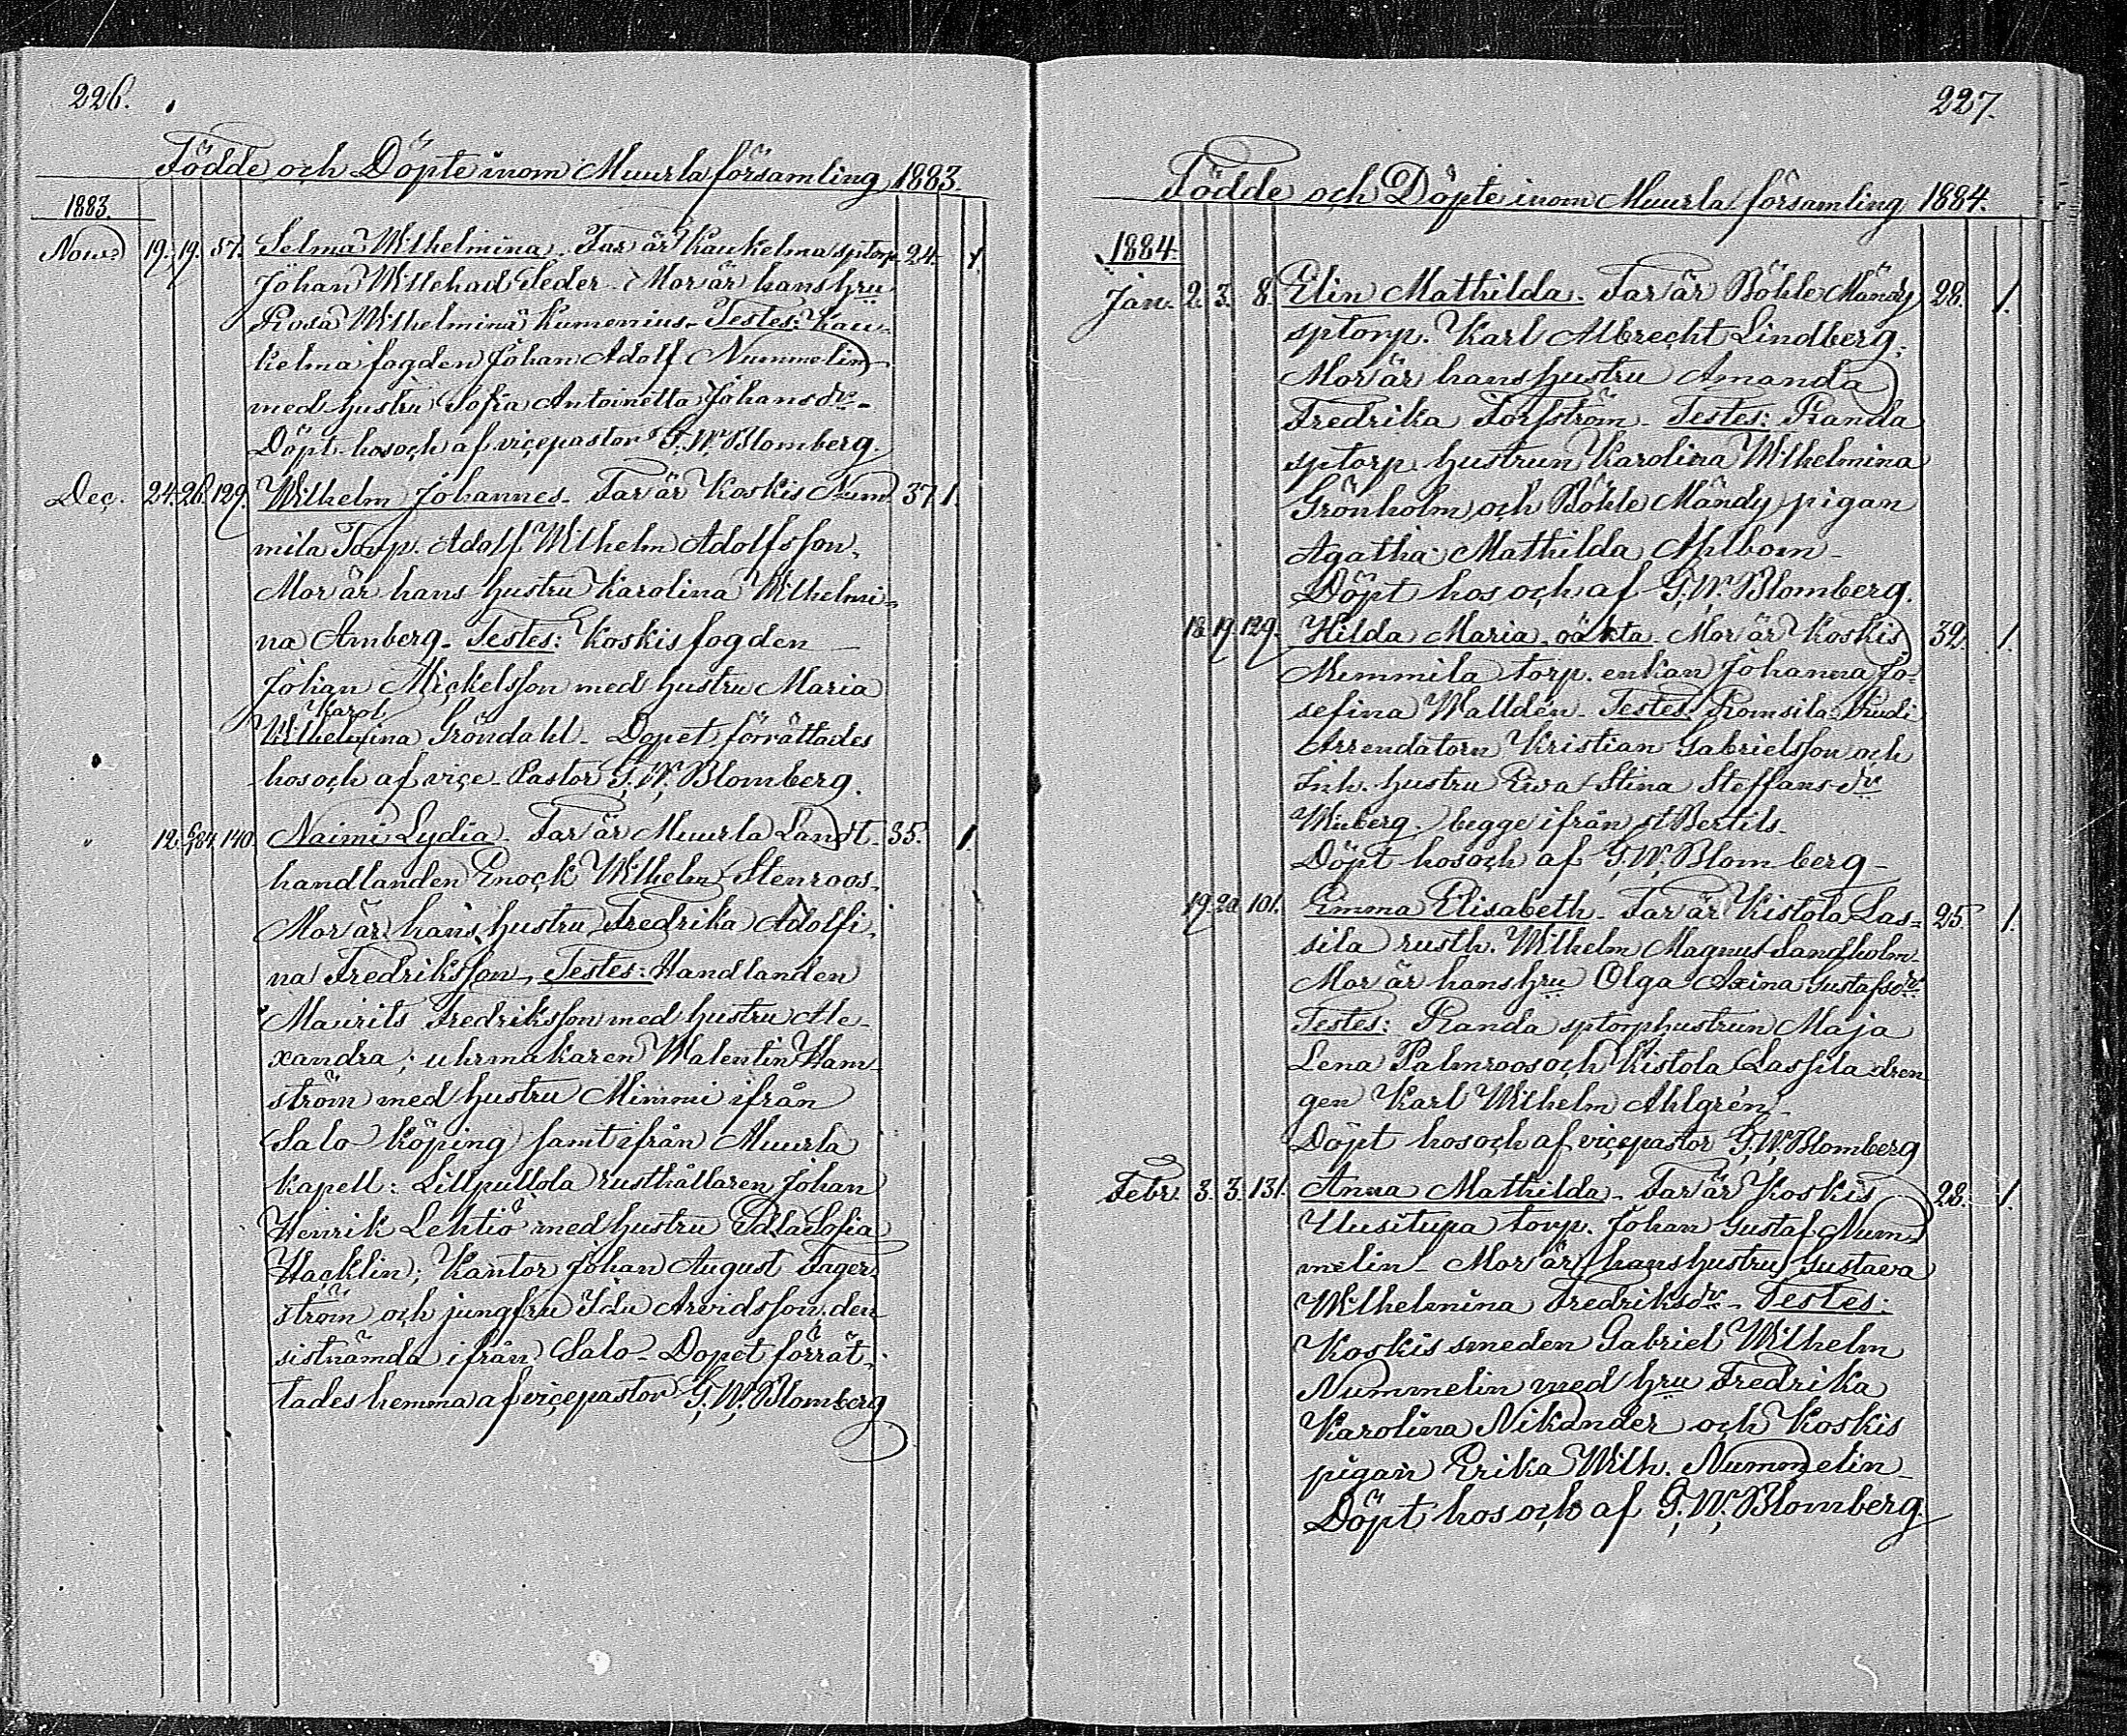 226.
Födde och Döpte inom Muurla församling 1883.
1883.
Nov. 19. 19. 87. Selma Wilhelmina. Far är Kaukelma sptorp. 24. 1.
Johan Willehad Seder. Mor är hans hru
Rosa Wilhelmina Kumenius. Testes: Kau-
kelma fogden Johan Adolf Nummelin
med hustru Sofia Antoinetta Johansdr.
Döpt hos och af vicepastor G. W. Blomberg.
Dec. 24. 26. 129. Wilhelm Johannes. Far är Koskis Num- 37. 1.
mila Torp. Adolf Wilhelm Adolfsson.
Mor är hans hustru Karolina Wilhelmi-
na Amberg. Testes: Koskis fogden
Johan Mickelsson med hustru Maria
Karol.
Wilhelmina Gröndahl. Dopet förrättades
hos och af vice Pastor G. W. Blomberg.
" 12. 6/1 84. 140. Naimi Lydia. Far är Muurla Landt- 35. 1.
handlanden Enock Wilhelm Stenroos.
Mor är hans hustru Fredrika Adolfi-
na Fredriksson. Testes: Handlanden
Maurits Fredriksson med hustru Ale-
xandra; uhrmakaren Walentin Ham-
ström med hustru Mimmi ifrån
Salo köping samt ifrån Muurla
kapell: Lillpullola rusthållaren Johan
Henrik Lehtiö med hustru Edla Sofia
Hacklin; Kantor Johan August Fager-
ström och jungfru Ida Arvidsson, den
sistnämda ifrån Salo. Dopet förrät-
tades hemma af vicepastor G. W. Blomberg
227.
Födde och Döpte inom Muurla församling 1884.
1884.
Jan. 2. 3. 8. Elin Mathilda. Far är Böhle Mändy 28. 1.
sptorp. Karl Albrecht Lindberg.
Mor är hans hustru Amanda
Fredrika Torfström. Testes: Randa
sptorp hustrun Karolina Wilhelmina
Grönholm och Böhle Mändy pigan
Agatha Mathilda Ahlbom.
Döpt hos och af G. W. Blomberg.
18. 19. 129. Hilda Maria, oäkta. Mor är Koskis 39. 1.
Mimmila torp. enkan Johanna Jo-
sefina Walldén. Testes: Romsila
Arrendatorn Kristian Gabrielsson och
Inh. hustru Ewa Stina Steffansdr
Wiiberg. begge ifrån St Bertils.
Döpt hos och af G. W. Blomberg.
19. 20. 101. Emma Elisabeth. Far är Kistola Las- 25. 1.
sila rusth. Wilhelm Magnus Sandholm.
Mor är hans hru Olga Axina Gustafsdr.
Testes: Randa sptorphustrun Maja
Lena Palmroos och Kistola Lassila dren
gen Karl Wilhelm Ahlgrén.
Döpt hos och af vicepastor G. W. Blomberg
Febr. 3. 3. 131. Anna Mathilda. Far är Koskis 28. 1.
Uusitupa torp. Johan Gustaf Num-
melin. Mor är hans hustru Gustava
Wilhelmina Fredriksdr. Testes:
Koskis smeden Gabriel Wilhelm
Nummelin med hru Fredrika
Karolina Nikander och Koskis
pigan Erika Wilh. Nummelin.
Döpt hos och af G. W. Blomberg.